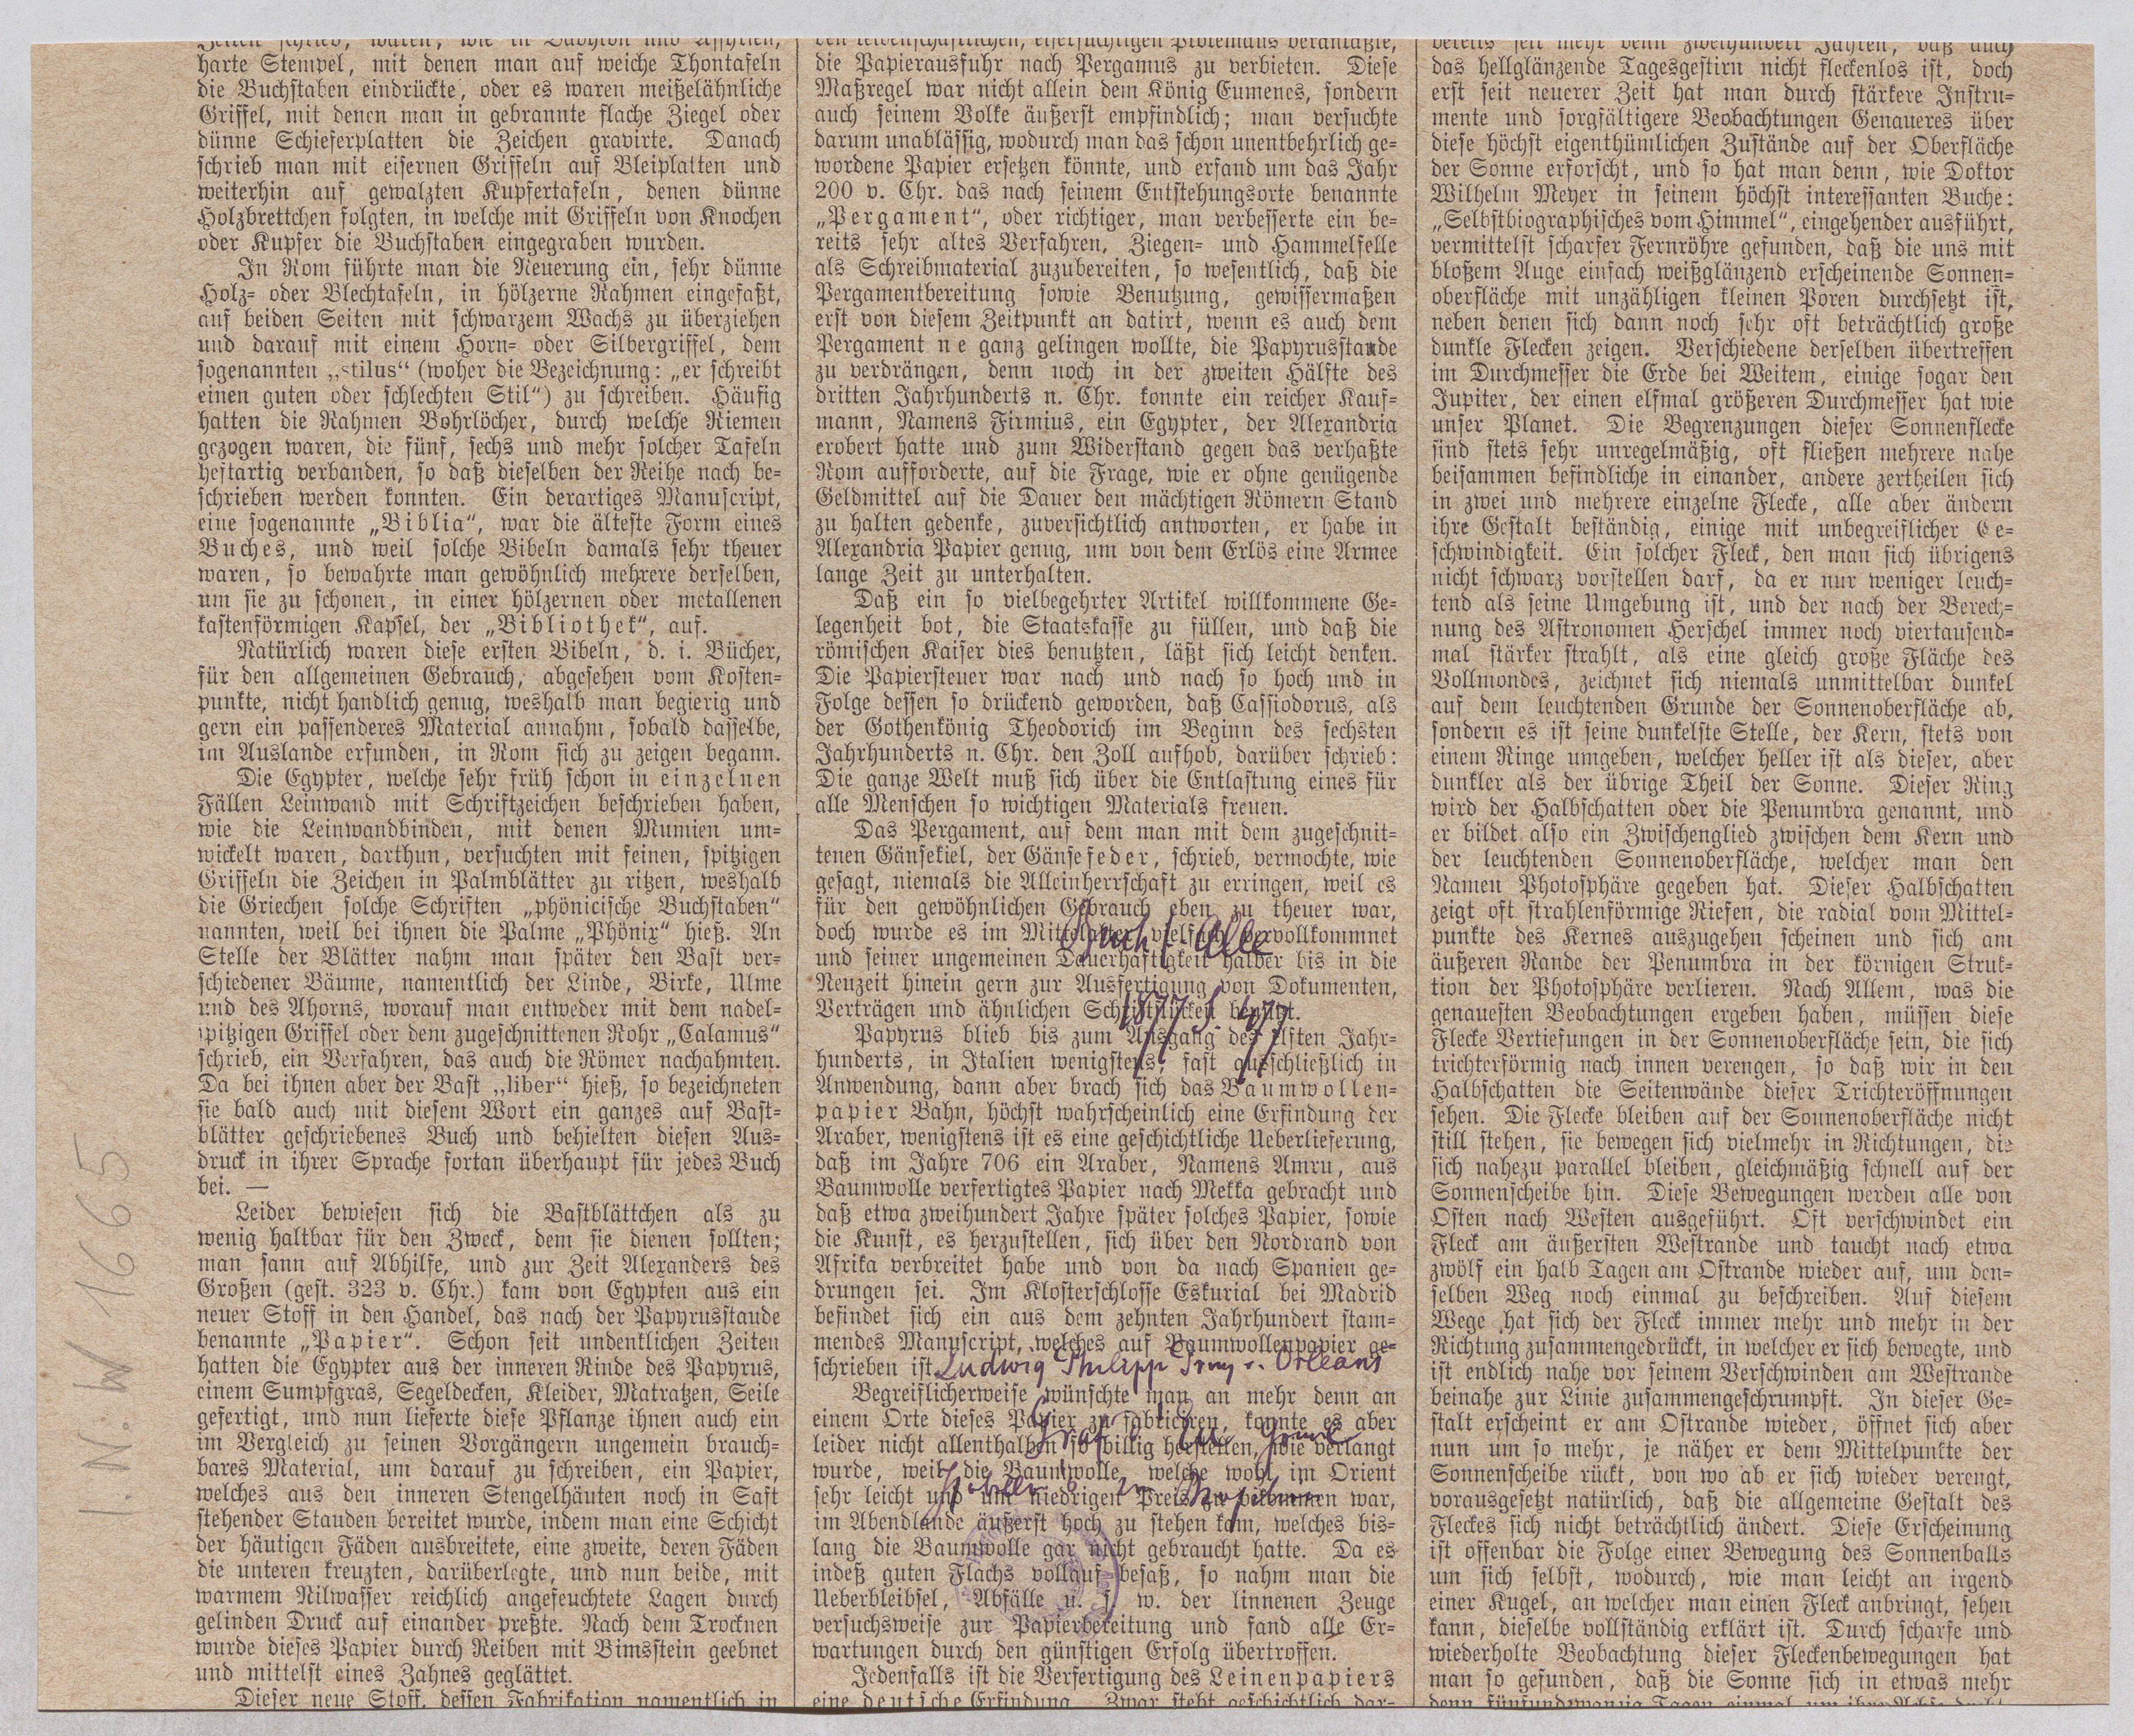 harte Stempel, mit denen man auf weiche Thontafeln
die Buchstaben eindrückte, oder es waren meißelähnliche
Griffel, mit denen man in gebrannte flache Ziegel oder
dünne Schieferplatten die Zeichen gravirte. Danach
schrieb man mit eisernen Griffeln auf Bleiplatten und
weiterhin auf gewalzten Kupfertafeln, denen dünne
Holzbrettchen folgten, in welche mit Griffeln von Knochen
oder Kupfer die Buchstaben eingegraben wurden.
In Rom führte man die Neuerung ein, sehr dünne
Holz- oder Blechtafeln, in hölzerne Rahmen eingefaßt,
auf beiden Seiten mit schwarzem Wachs zu überziehen
und darauf mit einem Horn- oder Silbergriffel, dem
sogenannten „stilus“ (woher die Bezeichnung: „er schreibt
einen guten oder schlechten Stil“) zu schreiben. Häufig
hatten die Rahmen Bohrlöcher, durch welche Riemen
gezogen waren, die fünf, sechs und mehr solcher Tafeln
heftartig verbanden, so daß dieselben der Reihe nach be-
schrieben werden konnten. Ein derartiges Manuscript,
eine sogenannte „Biblia“, war die älteste Form eines
Buches, und weil solche Bibeln damals sehr theuer
waren, so bewahrte man gewöhnlich mehrere derselben,
um sie zu schonen, in einer hölzernen oder metallenen
kastenförmigen Kapsel, der „Bibliothek“, auf.
Natürlich waren diese ersten Bibeln, d. i. Bücher,
für den allgemeinen Gebrauch, abgesehen vom Kosten-
punkte, nicht handlich genug, weshalb man begierig und
gern ein passenderes Material annahm, sobald dasselbe,
im Auslande erfunden, in Rom sich zu zeigen begann.
Die Egypter, welche sehr früh schon in einzelnen
Fällen Leinwand mit Schriftzeichen beschrieben haben,
wie die Leinwandbinden, mit denen Mumien um-
wickelt waren, darthun, versuchten mit feinen, spitzigen
Griffeln die Zeichen in Palmblätter zu ritzen, weshalb
die Griechen solche Schriften „phönicische Buchstaben“
nannten, weil bei ihnen die Palme „Phönix“ hieß. An
Stelle der Blätter nahm man später den Bast ver-
schiedener Bäume, namentlich der Linde, Birke, Ulme
und des Ahorns, worauf man entweder mit dem nadel-
spitzigen Griffel oder dem zugeschnittenen Rohr „Calamus“
schrieb, ein Verfahren, das auch die Römer nachahmten.
Da bei ihnen aber der Bast „liber“ hieß, so bezeichneten
sie bald auch mit diesem Wort ein ganzes auf Bast-
blätter geschriebenes Buch und behielten diesen Aus-
druck in ihrer Sprache fortan überhaupt für jedes Buch
bei. —
Leider bewiesen sich die Bastblättchen als zu
wenig haltbar für den Zweck, dem sie dienen sollten;
man sann auf Abhilfe, und zur Zeit Alexanders des
Großen (gest. 323 v. Chr.) kam von Egypten aus ein
neuer Stoff in den Handel, das nach der Papyrusstaude
benannte „Papier“. Schon seit undenklichen Zeiten
hatten die Egypter aus der inneren Rinde des Papyrus,
einem Sumpfgras, Segeldecken, Kleider, Matratzen, Seile
gefertigt, und nun lieferte diese Pflanze ihnen auch ein
im Vergleich zu seinen Vorgängern ungemein brauch-
bares Material, um darauf zu schreiben, ein Papier,
welches aus den inneren Stengelhäuten noch in Saft
stehender Stauden bereitet wurde, indem man eine Schicht
der häutigen Fäden ausbreitete, eine zweite, deren Fäden
die unteren kreuzten, darüberlegte, und nun beide, mit
warmem Nilwasser reichlich angefeuchtete Lagen durch
gelinden Druck auf einander preßte. Nach dem Trocknen
wurde dieses Papier durch Reiben mit Bimsstein geebnet
und mittelst eines Zahnes geglättet.
Dieser neue Stoff, dessen Fabrikation namentlich in
den leidenschaftlichen, eifersüchtigen Ptolemäus veranlaßte,
die Papierausfuhr nach Pergamus zu verbieten. Diese
Maßregel war nicht allein dem König Eumenes, sondern
auch seinem Volke äußerst empfindlich; man versuchte
darum unablässig, wodurch man das schon unentbehrlich ge-
wordene Papier ersetzen könnte, und erfand um das Jahr
200 v. Chr. das nach seinem Entstehungsorte benannte
„Pergament“, oder richtiger, man verbesserte ein be-
reits sehr altes Verfahren, Ziegen- und Hammelfelle
als Schreibmaterial zuzubereiten, so wesentlich, daß die
Pergamentbereitung sowie Benutzung, gewissermaßen
erst von diesem Zeitpunkt an datirt, wenn es auch dem
Pergament n e ganz gelingen wollte, die Papyrusstande
zu verdrängen, denn noch in der zweiten Hälfte des
dritten Jahrhunderts n. Chr. konnte ein reicher Kauf-
mann, Namens Firmius, ein Egypter, der Alexandria
erobert hatte und zum Widerstand gegen das verhaßte
Rom aufforderte, auf die Frage, wie er ohne genügende
Geldmittel auf die Dauer den mächtigen Römern Stand
zu halten gedenke, zuversichtlich antworten, er habe in
Alexandria Papier genug, um von dem Erlös eine Armee
lange Zeit zu unterhalten.
Daß ein so vielbegehrter Artikel willkommene Ge-
legenheit bot, die Staatskasse zu füllen, und daß die
römischen Kaiser dies benutzten, läßt sich leicht denken.
Die Papiersteuer war nach und nach so hoch und in
Folge dessen so drückend geworden, daß Cassiodorus, als
der Gothenkönig Theodorich im Beginn des sechsten
Jahrhunderts n. Chr. den Zoll aufhob, darüber schrieb:
Die ganze Welt muß sich über die Entlastung eines für
alle Menschen so wichtigen Materials freuen.
Das Pergament, auf dem man mit dem zugeschnit-
tenen Gänsekiel, der Gänsefeder, schrieb, vermochte, wie
gesagt, niemals die Alleinherrschaft zu erringen, weil es
für den gewöhnlichen Gebrauch eben zu theuer war,
doch wurde es im Mittelalter vielfach vervollkommnet
und seiner ungemeinen Dauerhaftigkeit halber bis in die
Neuzeit hinein gern zur Ausfertigung von Dokumenten,
Verträgen und ähnlichen Schriftstücken benutzt.
Papyrus blieb bis zum Ausgang des elften Jahr-
hunderts, in Italien wenigstens, fast ausschließlich in
Anwendung, dann aber brach sich das Baumwollen-
papier Bahn, höchst wahrscheinlich eine Erfindung der
Araber, wenigstens ist es eine geschichtliche Ueberlieferung,
daß im Jahre 706 ein Araber, Namens Amru, aus
Baumwolle verfertigtes Papier nach Mekka gebracht und
daß etwa zweihundert Jahre später solches Papier, sowie
die Kunst, es herzustellen, sich über den Nordrand von
Afrika verbreitet habe und von da nach Spanien ge-
drungen sei. Im Klosterschlosse Eskurial bei Madrid
befindet sich ein aus dem zehnten Jahrhundert stam-
mendes Manuscript, welches auf Baumwollenpapier ge-
schrieben ist
Ludwig Philipp v. Orleans
Begreiflicherweise wünschte man an mehr denn an
einem Orte dieses Papier zu fabriciren, konnte es aber
leider nicht allenthalben so billig herstellen, wie verlangt
wurde, weil die Baumwolle, welche wohl im Orient
sehr leicht und um niedrigen Preis zu bekommen war,
im Abendlande äußerst hoch zu stehen kam, welches bis-
lang die Baumwolle gar nicht gebraucht hatte. Da es
indeß guten Flachs vollauf besaß, so nahm man die
Ueberbleibsel, Abfälle u. s. w. der linnenen Zeuge
versuchsweise zur Papierbereitung und fand alle Er-
wartungen durch den günstigen Erfolg übertroffen.
Jedenfalls ist die Verfertigung des Leinenpapiers
eine deutsche Erfindung. Zwar steht geschichtlich dar-
bereits seit mehr denn zweihundert Jahren, daß auch
das hellglänzende Tagesgestirn nicht fleckenlos ist, doch
erst seit neuerer Zeit hat man durch stärkere Instru-
mente und sorgfältigere Beobachtungen Genaueres über
diese höchst eigenthümlichen Zustände auf der Oberfläche
der Sonne erforscht, und so hat man denn, wie Doktor
Wilhelm Meyer in seinem höchst interessanten Buche:
„Selbstbiographisches vom Himmel“, eingehender ausführt,
vermittelst scharfer Fernröhre gefunden, daß die uns mit
bloßem Auge einfach weißglänzend erscheinende Sonnen-
oberfläche mit unzähligen kleinen Poren durchsetzt ist,
neben denen sich dann noch sehr oft beträchtlich große
dunkle Flecken zeigen. Verschiedene derselben übertreffen
im Durchmesser die Erde bei Weitem, einige sogar den
Jupiter, der einen elfmal größeren Durchmesser hat wie
unser Planet. Die Begrenzungen dieser Sonnenflecke
sind stets sehr unregelmäßig, oft fließen mehrere nahe
beisammen befindliche in einander, andere zertheilen sich
in zwei und mehrere einzelne Flecke, alle aber ändern
ihre Gestalt beständig, einige mit unbegreiflicher Ge-
schwindigkeit. Ein solcher Fleck, den man sich übrigens
nicht schwarz vorstellen darf, da er nur weniger leuch-
tend als seine Umgebung ist, und der nach der Berech-
nung des Astronomen Herschel immer noch viertausend-
mal stärker strahlt, als eine gleich große Fläche des
Vollmondes, zeichnet sich niemals unmittelbar dunkel
auf dem leuchtenden Grunde der Sonnenoberfläche ab,
sondern es ist seine dunkelste Stelle, der Kern, stets von
einem Ringe umgeben, welcher heller ist als dieser, aber
dunkler als der übrige Theil der Sonne. Dieser Ring
wird der Halbschatten oder die Penumbra genannt, und
er bildet also ein Zwischenglied zwischen dem Kern und
der leuchtenden Sonnenoberfläche, welcher man den
Namen Photosphäre gegeben hat. Dieser Halbschatten
zeigt oft strahlenförmige Riefen, die radial vom Mittel-
punkte des Kernes auszugehen scheinen und sich am
äußeren Rande der Penumbra in der körnigen Struk-
tion der Photosphäre verlieren. Nach Allem, was die
genauesten Beobachtungen ergeben haben, müssen diese
Flecke Vertiefungen in der Sonnenoberfläche sein, die sich
trichterförmig nach innen verengen, so daß wir in den
Halbschatten die Seitenwände dieser Trichteröffnungen
sehen. Die Flecke bleiben auf der Sonnenoberfläche nicht
still stehen, sie bewegen sich vielmehr in Richtungen, die
sich nahezu parallel bleiben, gleichmäßig schnell auf der
Sonnenscheibe hin. Diese Bewegungen werden alle von
Osten nach Westen ausgeführt. Oft verschwindet ein
Fleck am äußersten Westrande und taucht nach etwa
zwölf ein halb Tagen am Ostrande wieder auf, um den-
selben Weg noch einmal zu beschreiben. Auf diesem
Wege hat sich der Fleck immer mehr und mehr in der
Richtung zusammengedrückt, in welcher er sich bewegte, und
ist endlich nahe vor seinem Verschwinden am Westrande
beinahe zur Linie zusammengeschrumpft. In dieser Ge-
stalt erscheint er am Ostrande wieder, öffnet sich aber
nun um so mehr, je näher er dem Mittelpunkte der
Sonnenscheibe rückt, von wo ab er sich wieder verengt,
vorausgesetzt natürlich, daß die allgemeine Gestalt des
Fleckes sich nicht beträchtlich ändert. Diese Erscheinung
ist offenbar die Folge einer Bewegung des Sonnenballs
um sich selbst, wodurch, wie man leicht an irgend
einer Kugel, an welcher man einen Fleck anbringt, sehen
kann, dieselbe vollständig erklärt ist. Durch scharfe und
wiederholte Beobachtung dieser Fleckenbewegungen hat
man so gefunden, daß die Sonne sich in etwas mehr
I. N. W 1665